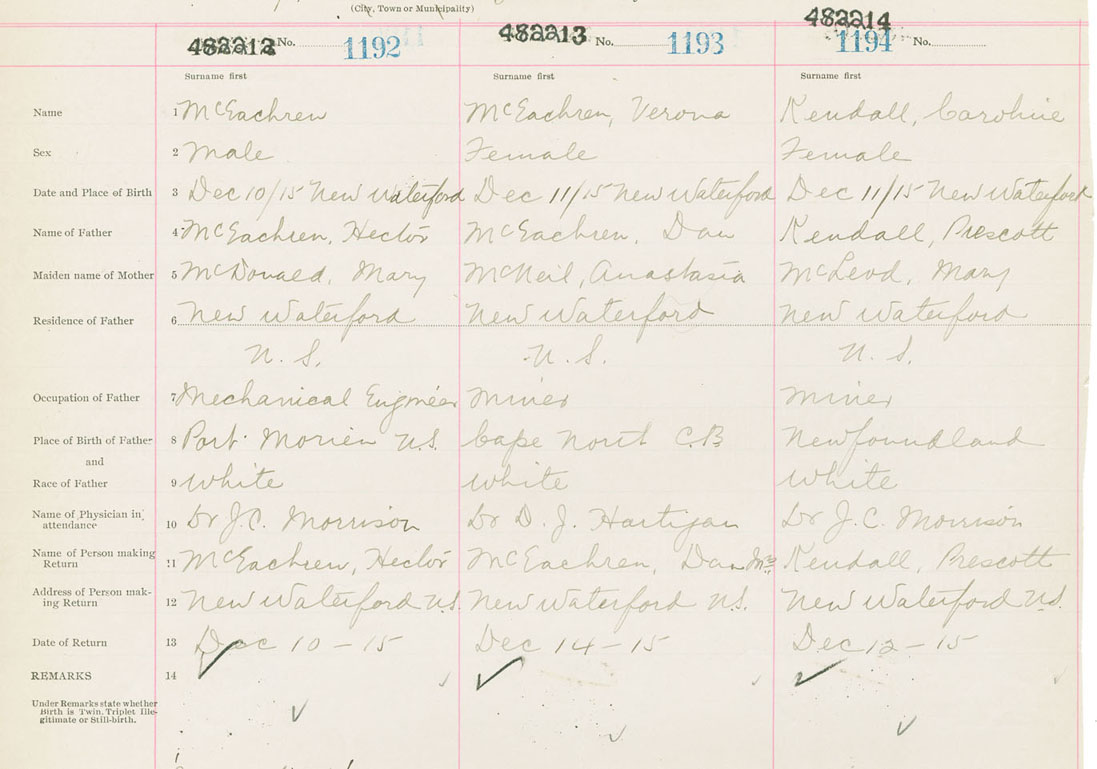 (City, Town or Municipality)
482212 No. 1192 482213 No. 1193 482214 1194 No.
Surname first Surname first Surname first
Name 1 McEachren McEachren, Verona Kendall, Caroline
Sex 2 Male Female Female
Date and Place of Birth 3 Dec 10/15 New Waterford Dec 11/15 New Waterford Dec 11/15 New Waterford
Name of Father 4 McEachren, Hector McEachren, Dan Kendall, Prescott
Maiden name of Mother 5 McDonald, Mary McNeil, Anastasia McLeod, Mary
Residence of Father 6 New Waterford New Waterford New Waterford
N. S. N. S. N. S.
Occupation of Father 7 Mechanical Engineer Miner Miner
Place of Birth of Father 8 Port Morien N.S. Cape North C.B. Newfoundland
and
Race of Father 9 White White White
Name of Physician in attendance 10 Dr J.C. Morrison Dr D. J. Hartigan Dr J. C. Morrison
Name of Person making Return 11 McEachren, Hector McEachren, Dan Mrs Kendall, Prescott
Address of Person making Return 12 New Waterford N.S. New Waterford N.S. New Waterford N.S.
Date of Return 13 Dec 10 - 15 Dec 14 - 15 Dec 12 - 15
REMARKS 14
Under Remarks state whether
Birth is Twin. Triplet Ille-
gitimate or Still-birth.